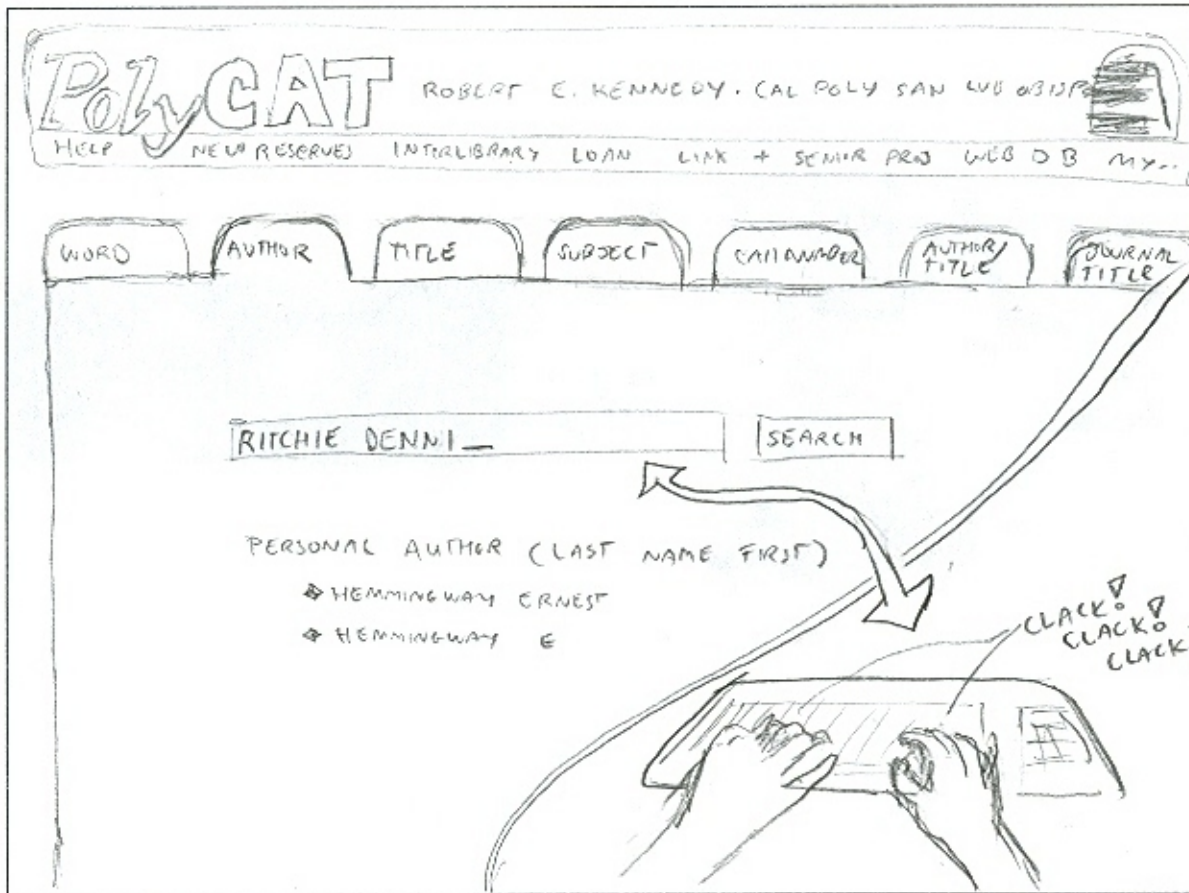 PolyCAT
ROBERT E. KENNEDY. CAL POLY SAN LUIS OBISPO
HELP NEW RESERVES INTERLIBRARY LOAN LINK + SENIOR PROJ WEB DB MY...
WORD AUTHOR TITLE SUBJECT CALL NUMBER AUTHOR/ TITLE JOURNAL TITLE
RITCHIE DENNI_ SEARCH
PERSONAL AUTHOR (LAST NAME FIRST)
HEMMINGWAY ERNEST
HEMMINGWAY E
CLACK!
CLACK!
CLACK